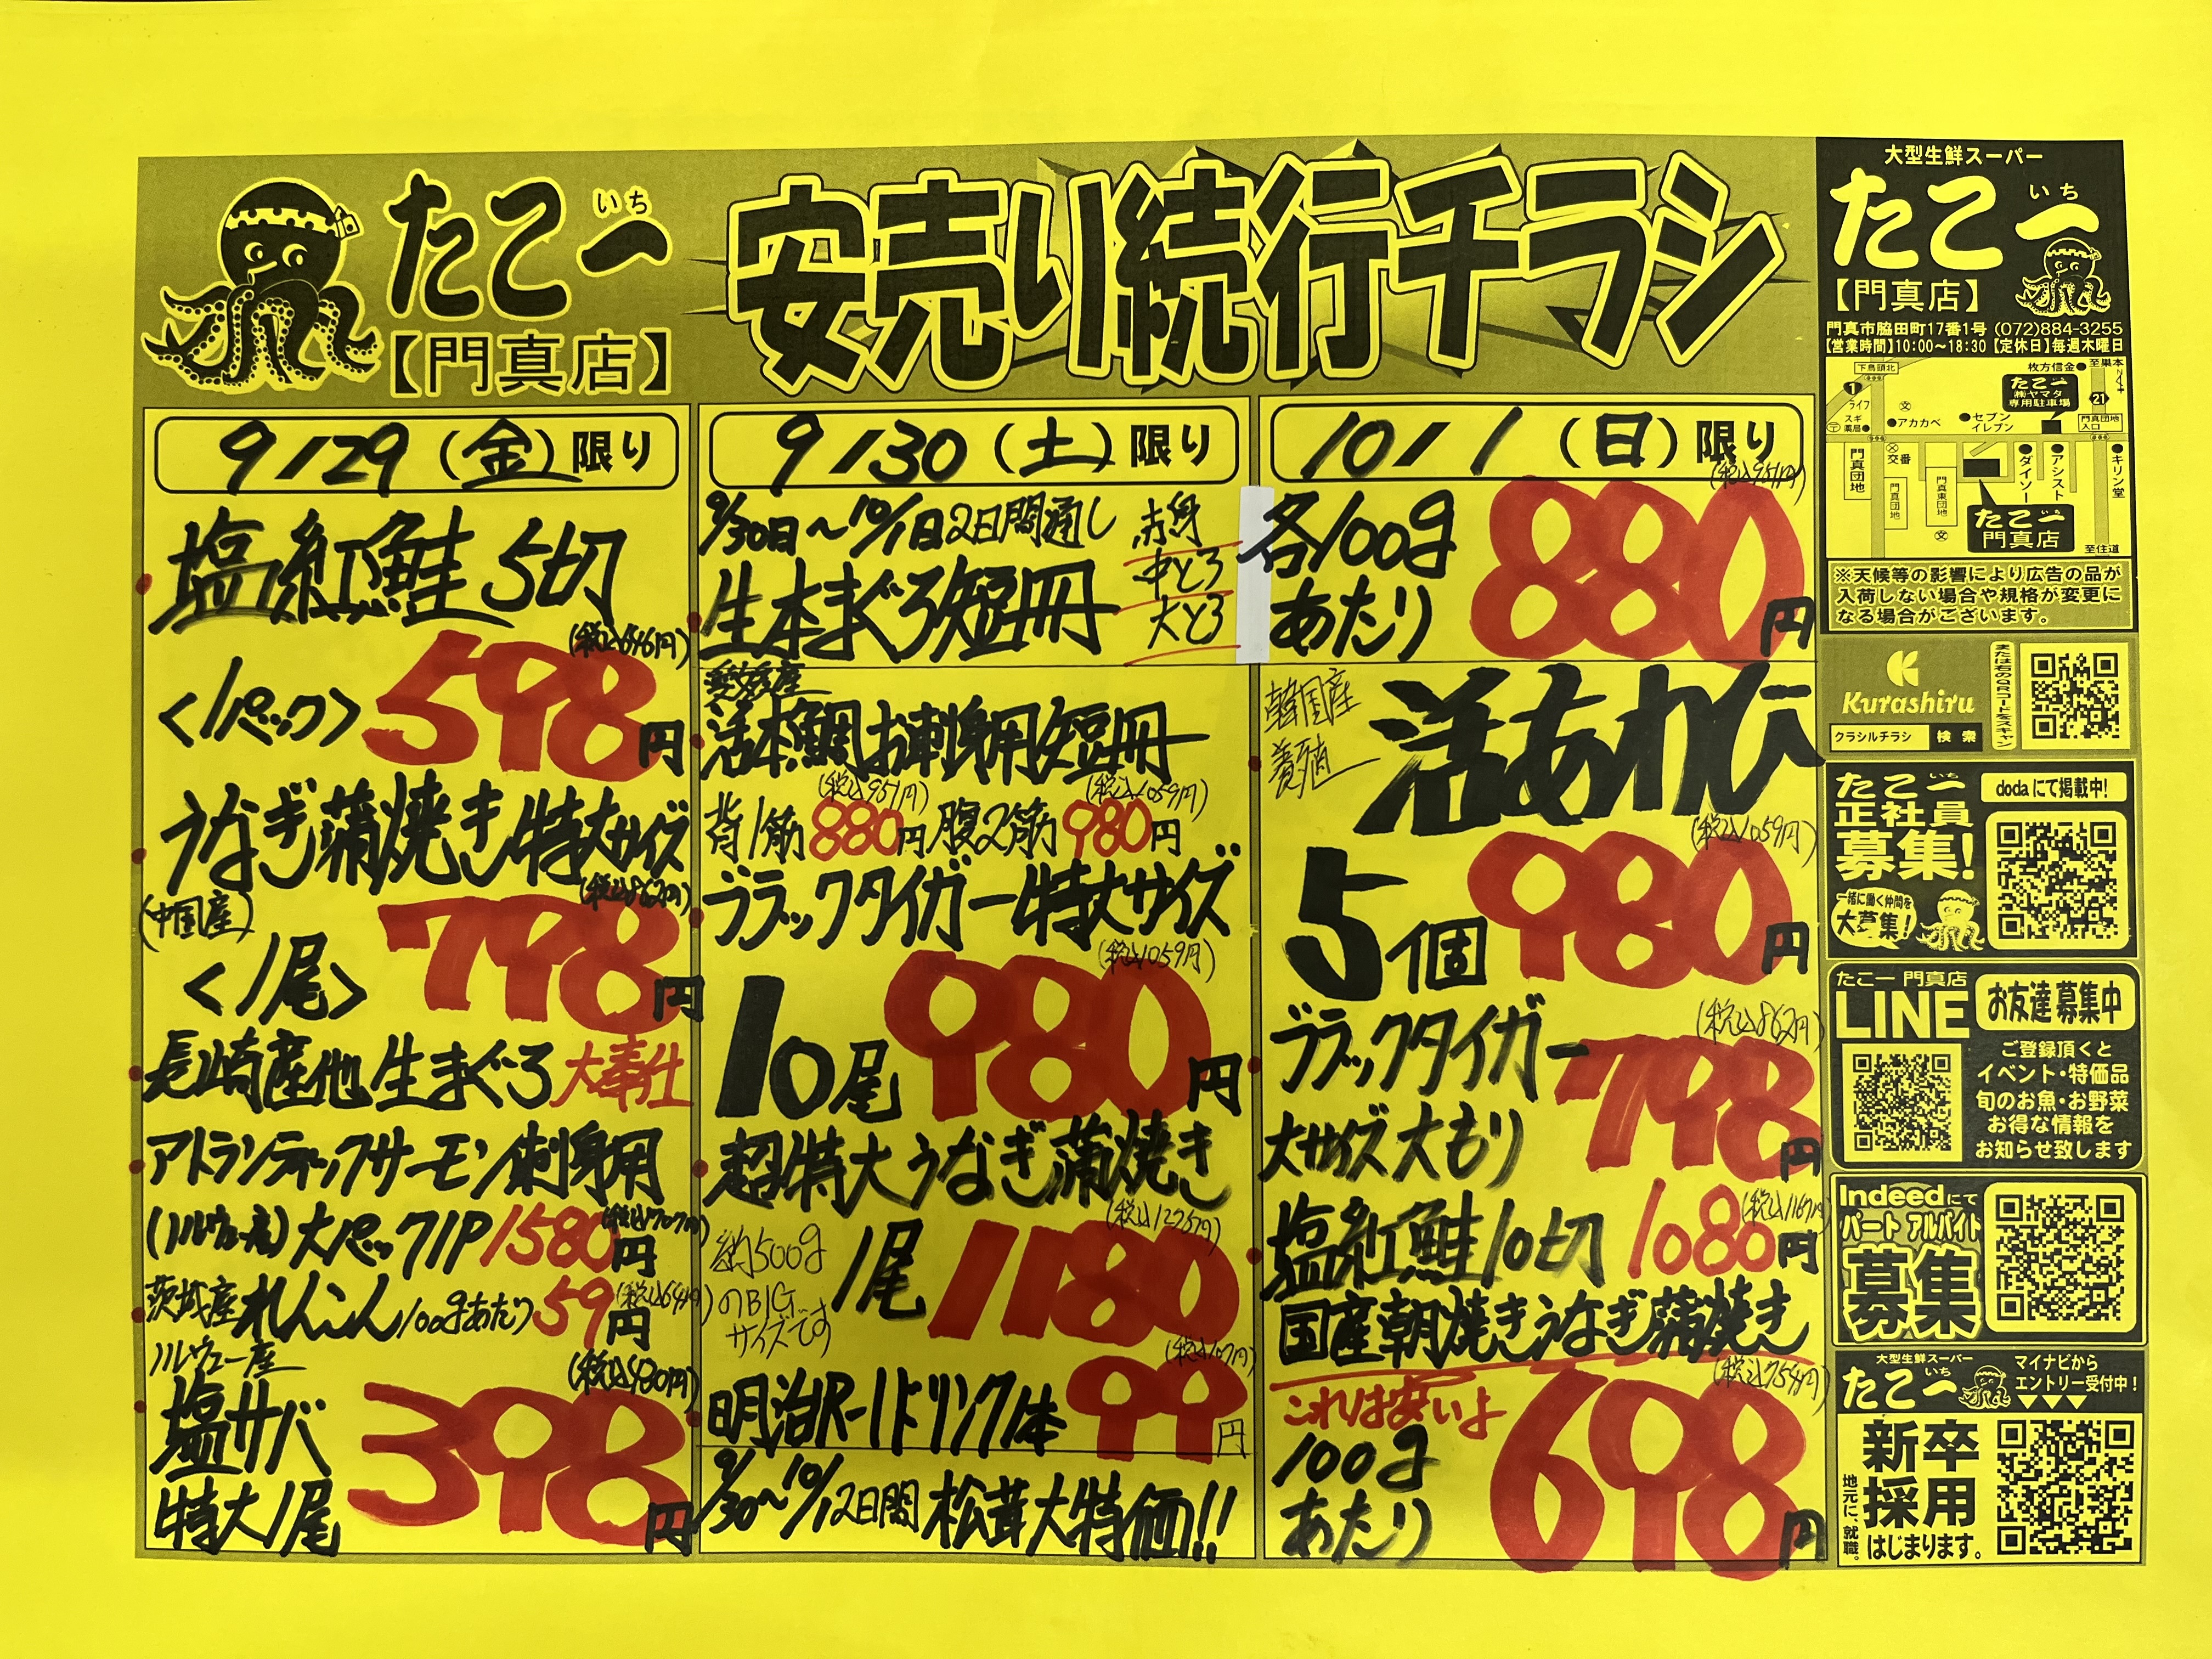 たこ一
いち
【門真店】
安売り続行チラシ
9/29(金)限り
塩紅鮭 5切
<1パック> 598円
(税込646円)
うなぎ蒲焼き特大サイズ
(中国産)
<1尾> 798円
(税込862円)
長崎産他 生まぐろ 大奉仕
アトランティックサーモン刺身用
(ノルウェー産) 大パック1P 1580円
(税込1707円)
茨城産 れんこん 100gあたり 59円
(税込64円)
ノルウェー産
塩サバ
特大1尾 398円
(税込430円)
9/30(土)限り
9/30日〜10/1日2日間通し
生本まぐろ短冊
赤身
中とろ
大とろ
愛媛産
活本鯛お刺身用短冊
背1筋 880円 腹2筋 980円
(税込951円) (税込1059円)
ブラックタイガー特大サイズ
10尾 980円
(税込1059円)
超特大うなぎ蒲焼き
約500g
のBIG
サイズです
1尾 1180円
(税込1275円)
明治R-1ドリンク1本 99円
(税込107円)
9/30〜10/1 2日間 松茸大特価!!
10/1(日)限り
各100g
あたり 880円
(税込951円)
韓国産
養殖
活あわび
5個 980円
(税込1059円)
ブラックタイガー
大サイズ大もり 798円
(税込862円)
塩紅鮭10切 1080円
(税込1167円)
国産朝焼きうなぎ蒲焼き
これは安いよ
100g
あたり 698円
(税込754円)
大型生鮮スーパー
たこ一
いち
【門真店】
門真市脇田町17番1号 (072)884-3255
【営業時間】10:00〜18:30【定休日】毎週木曜日
下馬頭北
枚方信金
至巣本
たこ一
㈱ヤマタ
専用駐車場
1
21
ライフ
スギ
薬局
アカカベ
セブン
イレブン
門真団地
入口
交番
門真団地
門真団地
門真東団地
ダイソー
アシスト
キリン堂
たこ一
門真店
至住道
※天候等の影響により広告の品が
入荷しない場合や規格が変更に
なる場合がございます。
Kurashiru
クラシルチラシ 検索
または右のQRコードをスキャン
たこ一
いち
正社員
募集!
一緒に働く仲間を
大募集!
dodaにて掲載中!
たこ一 門真店
LINE
お友達募集中
ご登録頂くと
イベント・特価品
旬のお魚・お野菜
お得な情報を
お知らせ致します
Indeedにて
パート アルバイト
募集
大型生鮮スーパー
たこ一
いち
マイナビから
エントリー受付中!
▼▼▼
新卒
採用
はじまります。
地元に、就職。